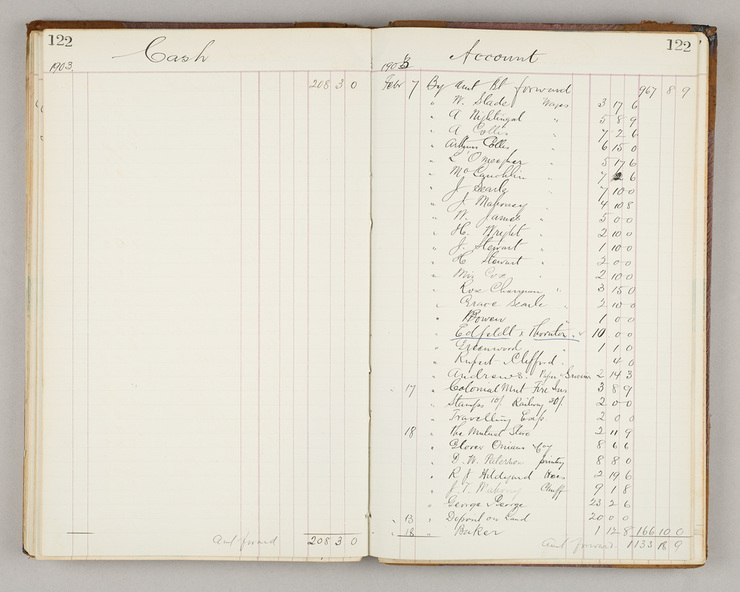 122
Cash
1903
208 3 0
Amt forward 208 3 0
122
1903 Account
Febr 7 By Amt Bt forward 967 8 9
" W. Slade Wages 3 17 6
" A Nightingal " 5 8 9
" A Collis " 7 2 6
" Collis " 6 15 0
" L O'Meagher " 5 17 6
" McLaughlin " 7 2 6
" J Searle " 7 10 0
" J Mahoney " 4 10 8
" W. James " 5 0 0
" H. Wright " 2 10 0
" J. Stewart " 1 10 0
" H Stewart " 2 0 0
" Miss Cox " 2 10 0
" Rose Chapman " 3 15 0
" Grace Searle " 2 10 0
" Bowen " 1 0 0
" Edfeldt & Thornton " 10 0 0
" Greenwood 1 1 0
" Rupert Clifford 4 0
" Andrews 2 14 3
" 17 " Colonial Mut Fire Ins 3 8 9
" Stamps 10/. Railway 20/. 2 0 0
" Travelling Exps 2 0 0
18 " The Mutual Store 2 11 9
" Glover Onians & Coy 8 6 6
" D. W. Paterson printing 8 8 0
" R J Hildyard 2 19 6
" J. T. Mahony Chaff 9 1 8
" George & George 23 2 6
" 13 " Deposit on Land 20 0 0
" 18 " Baker 1 12 8 166 10 0
Amt forward 1133 18 9